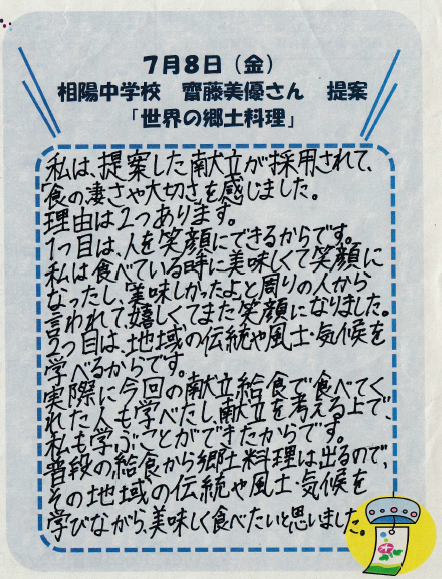 7月8日(金)
相陽中学校 齋藤美優さん 提案
「世界の郷土料理」
私は、提案した献立が採用されて、
食の凄さや大切さを感じました。
理由は2つあります。
1つ目は、人を笑顔にできるからです。
私は食べている時に美味しくて笑顔に
なったし、「美味しかったよ」と周りの人から
言われて、嬉しくてまた笑顔になりました。
2つ目は、地域の伝統や風土・気候を
学べるからです。
実際に今回の献立給食で食べてく
れた人も学べたし、献立を考える上で、
私も学ぶことができたからです。
普段の給食から郷土料理は出るので、
その地域の伝統や風土・気候を
学びながら、美味しく食べたいと思いました。